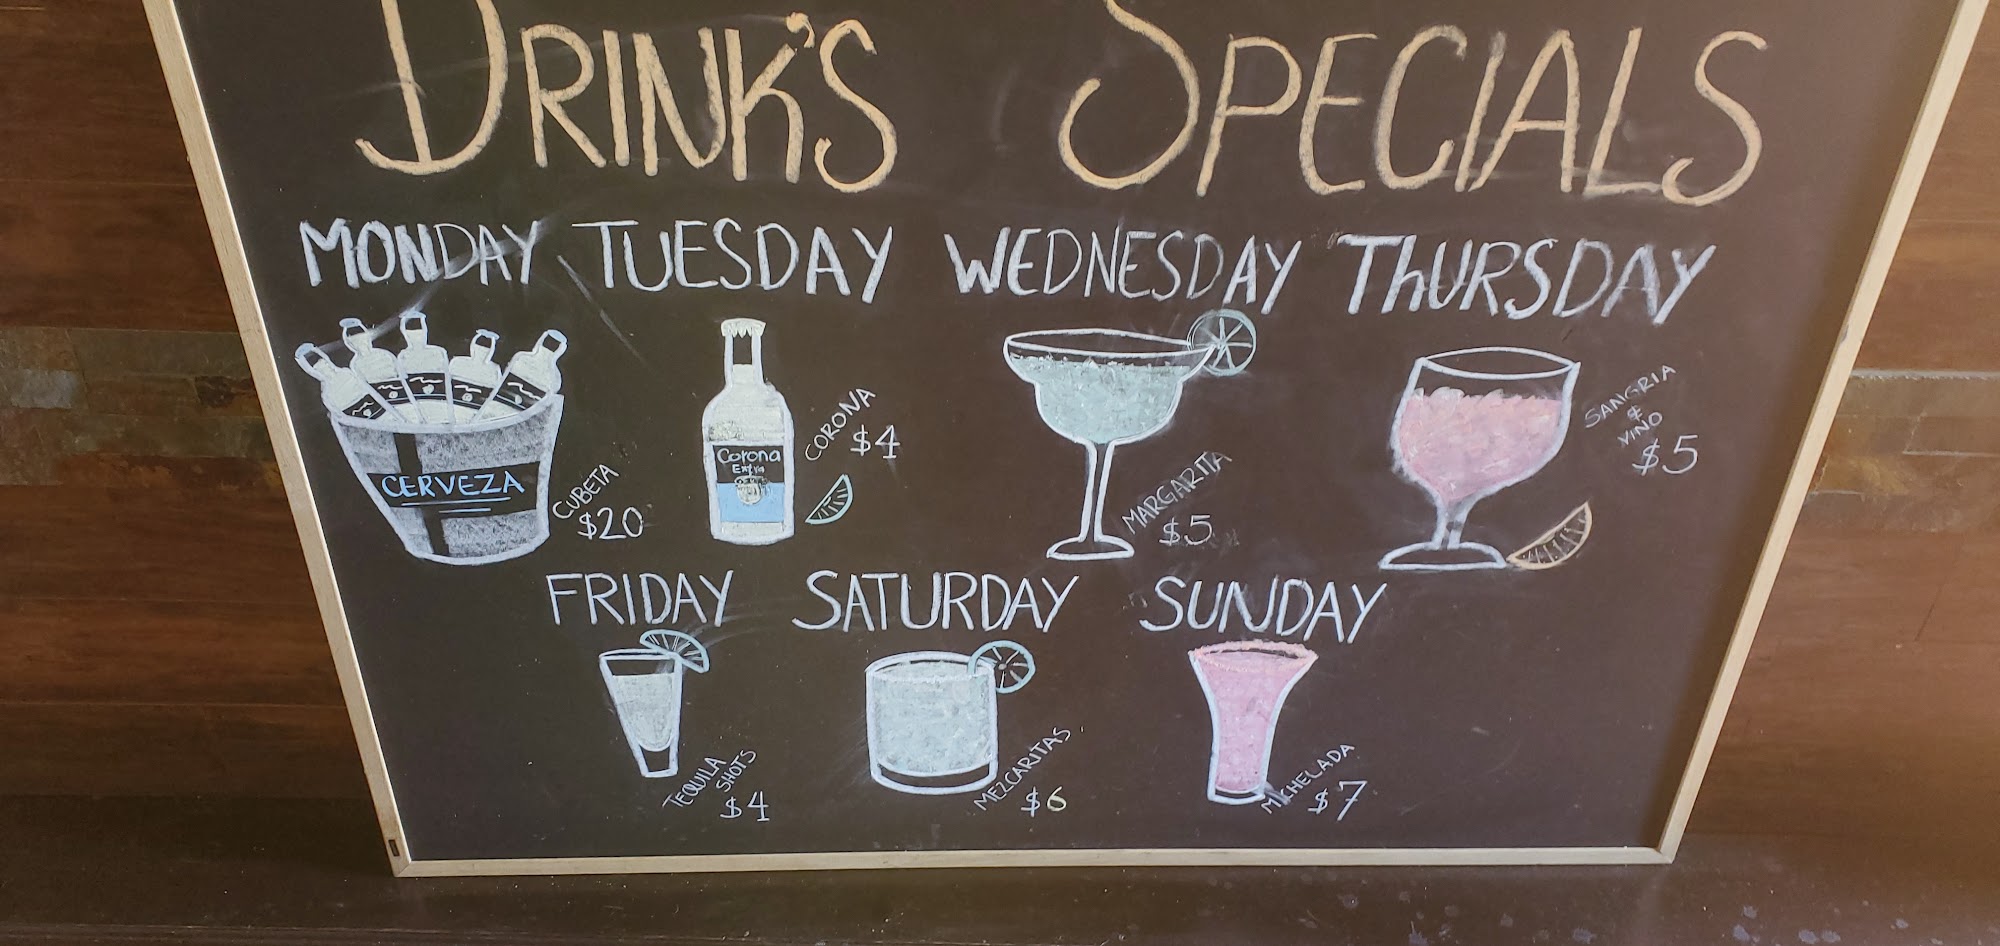 DRINK'S SPECIALS
MONDAY TUESDAY WEDNESDAY THURSDAY
CERVEZA
CUBETA
$20
Corona
Extra
CORONA
$4
MARGARITA
$5
SANGRIA
&
VINO
$5
FRIDAY SATURDAY SUNDAY
TEQUILA
SHOTS
$4
MEZCARITAS
$6
MICHELADA
$7